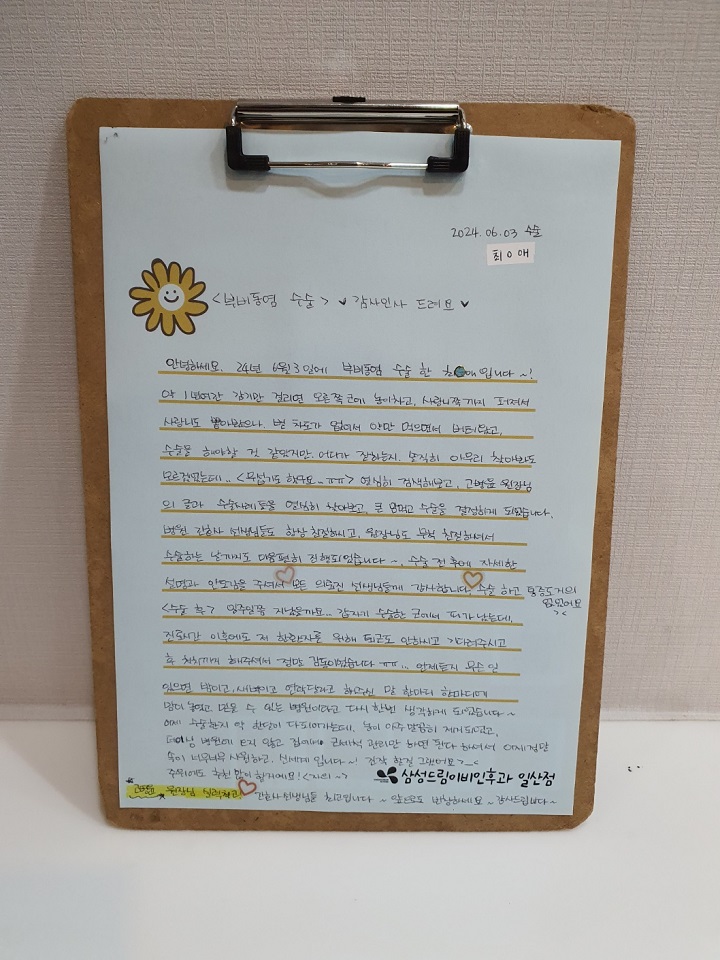 2024.06.03 수술
최ㅇ애
<부비동염 수술> ♥ 감사인사 드려요 ♥
안녕하세요. 24년 6월 3일에 부비동염 수술 한 최 애입니다 ~!
약 1년여간 감기만 걸리면 오른쪽 코에 농이차고, 사랑니쪽까지 퍼져서
사랑니도 뽑아봤으나. 별 차도가 없어서 약만 먹으면서 버티다가,
수술을 해야할 것 같았지만. 어디가 잘하는지. 솔직히 아무리 찾아봐도
모르겠었는데.. <무섭기도 했구요..ㅠㅠ> 열심히 검색해보고, 고병준 원장님
의 글과 수술사례들을 열심히 찾아보고, 큰 맘먹고 수술을 결정하게 되었습니다.
병원 간호사 선생님들도 항상 친절하시고, 원장님도 무척 친절하셔서
수술하는 날까지도 마음편히 진행되었습니다 ~. 수술 전 후에 자세한
설명과 안도감을 주셔서 모든 의료진 선생님들께 감사합니다. 수술 하고 통증도거의
없었어요
><
<수술 후> 일주일쯤 지났을까요.. 갑자기 수술한 코에서 피가 났는데,
진료시간 이후에도 저 한환자를 위해 퇴근도 안하시고 기다려주시고
후 처치까지 해주셔서 정말 감동이었습니다 ㅠㅠ... 언제든지 무슨 일
있으면 밤이고, 새벽이고 연락달라고 하주신 말 한마디 한마디에
맘이 놓였고. 믿을 수 있는 병원이라고 다시 한번 생각하게 되었습니다~
이제 수술한지 약 한달이 다되어가는데, 농이 아주말끔히 제거되었고,
더이상 병원에 오지 않고 집에서 코세척 관리만 하면 된다 하셔서 이제집단
속이 너무너무 시원하고. 신세계 입니다~! 진작 할걸 그랬어요 >_<
주위에도 추천 많이 할거에요! <자의 ~>
삼성드림이비인후과 일산점
고병준 원장님 실력최고! 간호사선생님들 최고입니다 ~ 앞으로도 번창하세요 ~ 감사드립니다~